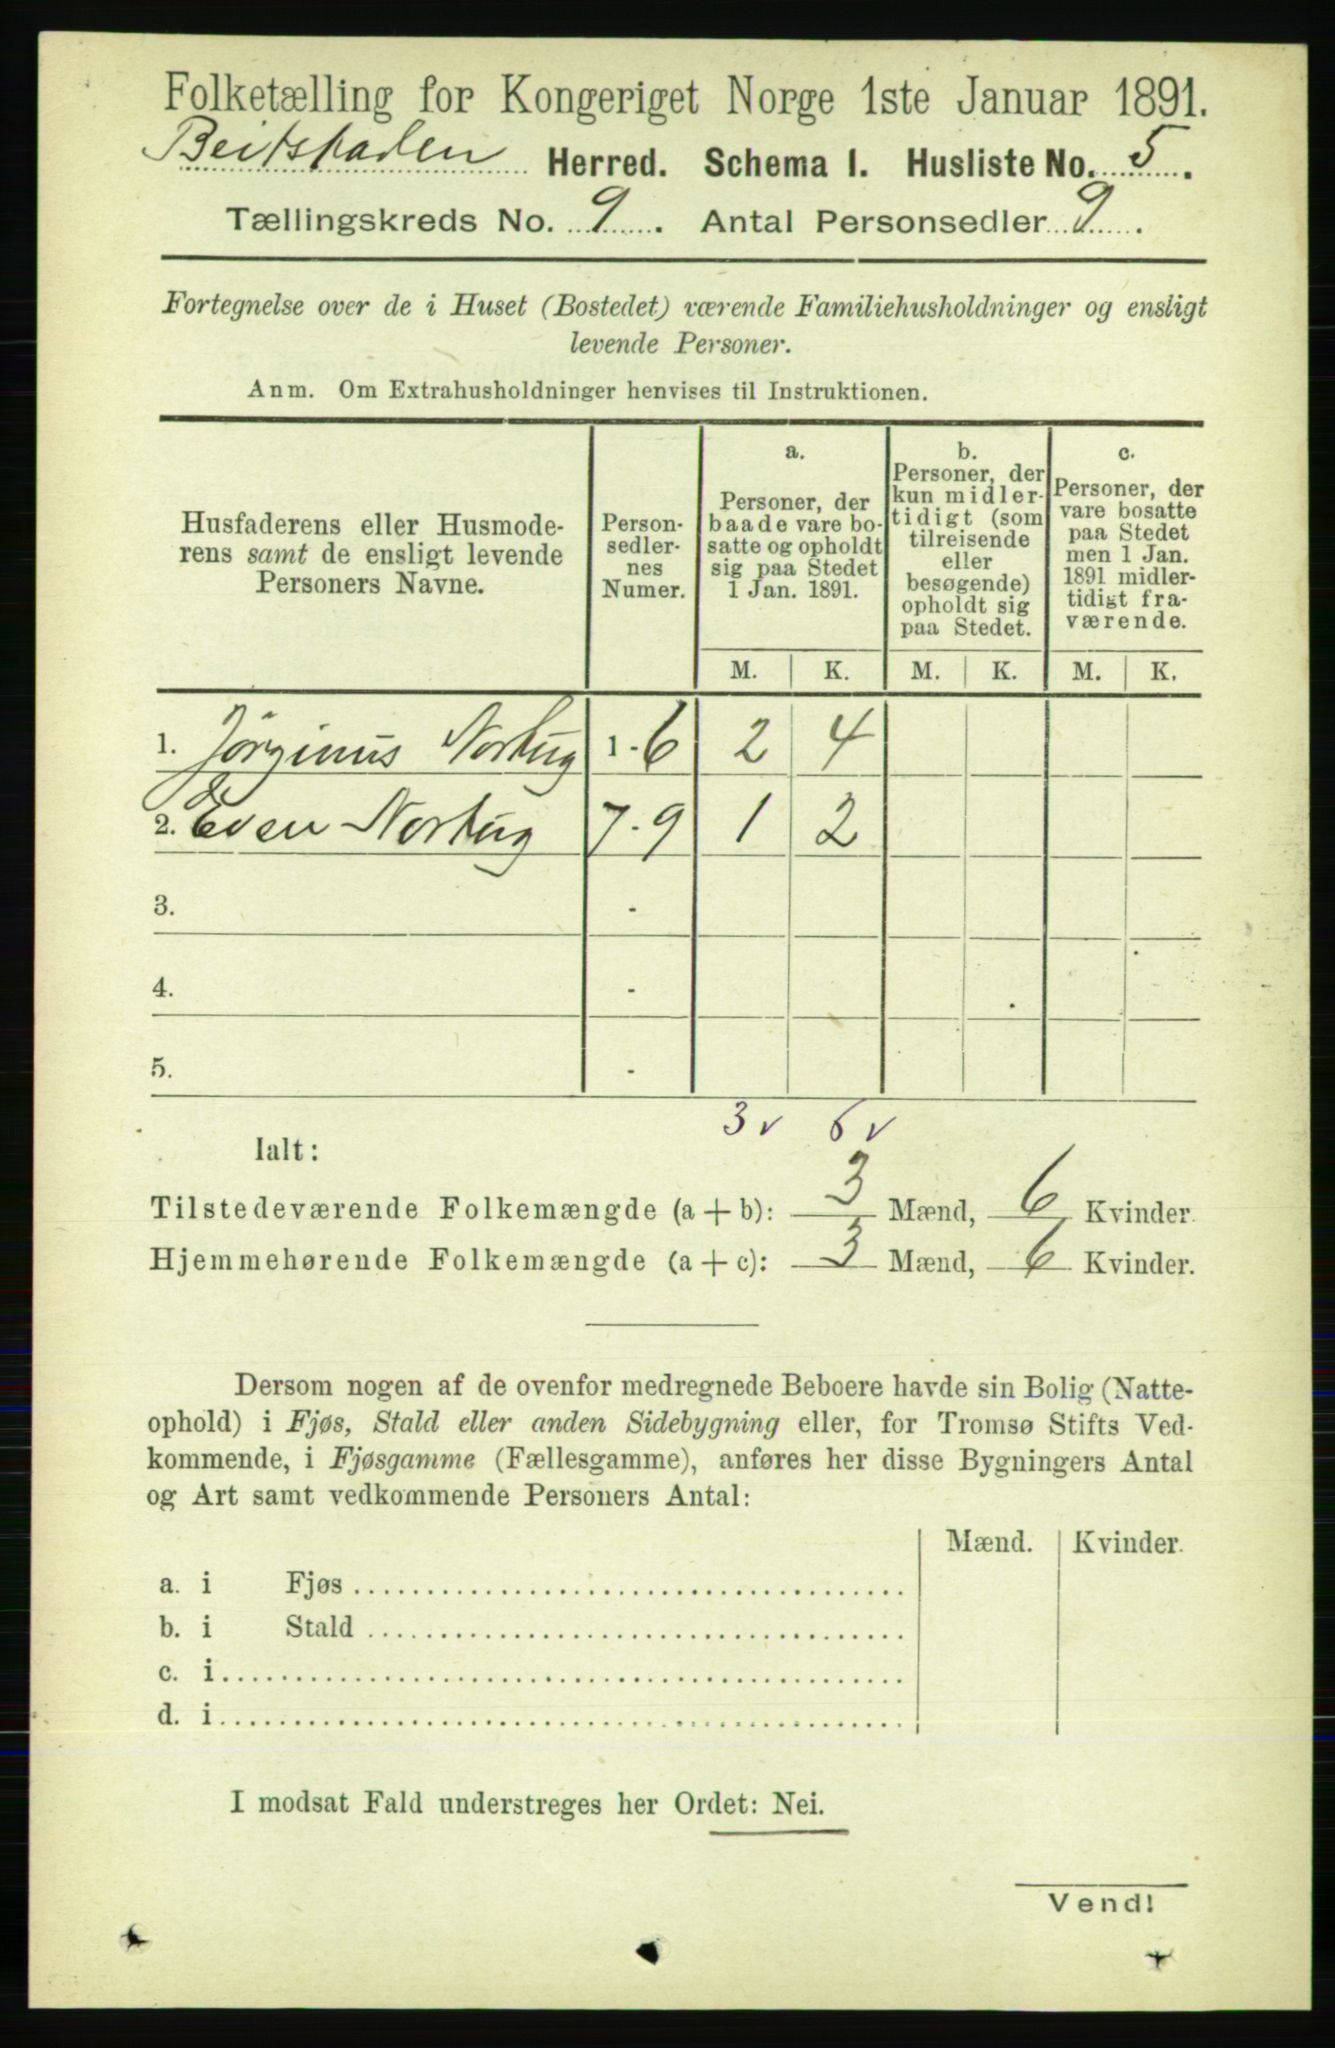 Folketælling for Kongeriget Norge 1ste Januar 1891.
Beitstaden Herred. Schema I. Husliste No. 5.
Tællingskreds No. 9. Antal Personsedler 9.
Fortegnelse over de i Huset (Bostedet) værende Familiehusholdninger og ensligt
levende Personer.
Anm. Om Extrahusholdninger henvises til Instruktionen.
Husfaderens eller Husmode-
rens samt de ensligt levende
Personers Navne.
Person-
sedler-
nes
Numer.
a.
Personer, der
baade vare bo-
satte og opholdt
sig paa Stedet
1 Jan. 1891.
b.
Personer, der
kun midler-
tidigt (som
tilreisende
eller
besøgende)
opholdt sig
paa Stedet.
c.
Personer, der
vare bosatte
paa Stedet
men 1 Jan.
1891 midler-
tidigt fra-
værende.
M. K. M. K. M. K.
1. Jörginus Nortug 1-6 2 4
2. Even Nortug 7-9 1 2
3. -
4. -
5. -
3 v 6 v
Ialt:
Tilstedeværende Folkemængde (a + b): 3 Mænd, 6 Kvinder.
Hjemmehørende Folkemængde (a + c): 3 Mænd, 6 Kvinder.
Dersom nogen af de ovenfor medregnede Beboere havde sin Bolig (Natte-
ophold) i Fjøs, Stald eller anden Sidebygning eller, for Tromsø Stifts Ved-
kommende, i Fjøsgamme (Fællesgamme), anføres her disse Bygningers Antal
og Art samt vedkommende Personers Antal:
Mænd. Kvinder.
a. i Fjøs
b. i Stald
c. i
d. i
I modsat Fald understreges her Ordet: Nei.
Vend!